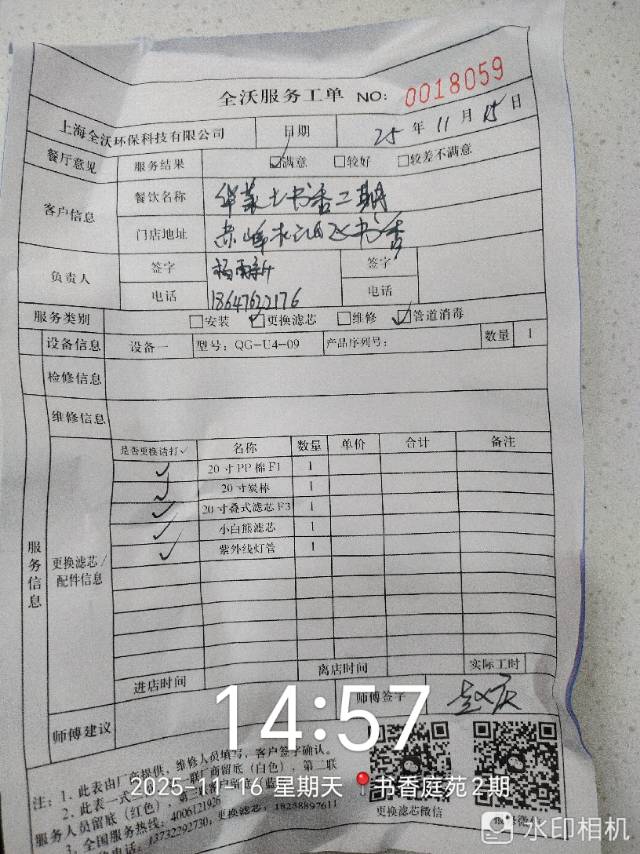 全沃服务工单 NO: 0018059
上海全沃环保科技有限公司 日期 25 年 11 月 15 日
餐厅意见 服务结果 ☑满意 □较好 □较差不满意
客户信息 餐饮名称 华莱士书香二期
门店地址 书香
负责人 签字 签字
电话 18647622176 电话
服务类别 □安装 ☑更换滤芯 □维修 ☑管道消毒
设备信息 设备一 型号: QG-U4-09 产品序列号: 数量 1
检修信息
维修信息
服务信息 更换滤芯/配件信息
是否更换请打✓ 名称 数量 单价 合计 备注
✓ 20寸PP棉F1 1
✓ 20寸炭棒 1
✓ 20寸叠式滤芯F3 1
✓ 小白熊滤芯 1
✓ 紫外线灯管 1
进店时间 离店时间 实际工时
师傅建议 师傅签字
14:57
2025-11-16 星期天 书香庭苑2期
注: 1. 此表由厂商提供, 维修人员填写, 客户签字确认。
2. 此表一式三联 厂商留底(白色), 第二联
服务人员留底(红色), 第三
3. 全国服务热线: 4006121926
电话: 13732292730, 更换滤芯: 18288897611
更换滤芯微信
水印相机